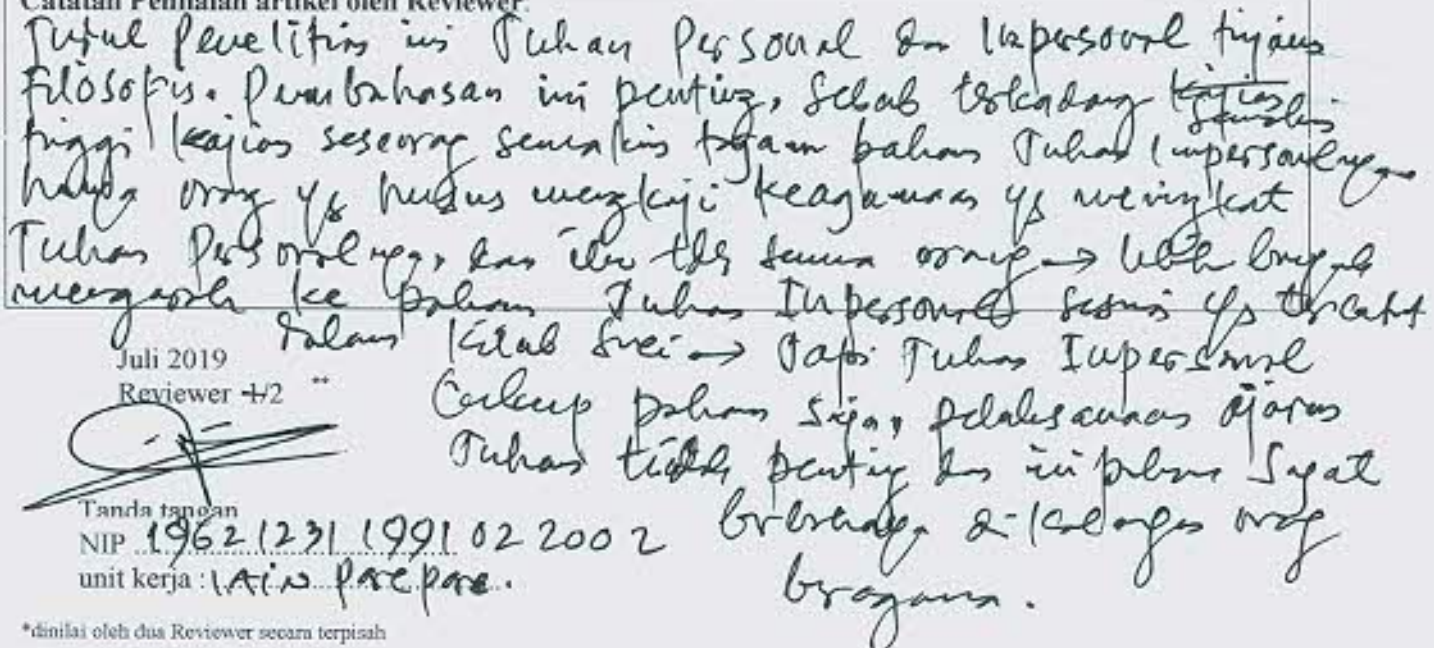 Catatan Penilaian artikel oleh Reviewer
Judul Penelitian ini Tuhan Personal dan Impersonal tinjauan
Filosofis. Pembahasan ini penting, sebab terkadang kajian semakin
tinggi kajian seseorang semakin tajam paham Tuhan Impersonalnya
hanya orang yg khusus mengkaji keagamaan yg meningkat
Tuhan Personalnya, dan itu tdk semua orang → lebih banyak
mengarah ke paham Tuhan Impersonal sesuai yg tercatat
dalam Kitab Suci → Tapi Tuhan Impersonal
Juli 2019
Reviewer 1/2 **
Cukup paham saja, pelaksanaan ajaran
Tuhan tidak penting dan ini paham sangat
Tanda tangan
NIP 19621231 1991 02 2002
berbahaya di kalangan orang
unit kerja : IAIN Parepare.
beragama.
*dinilai oleh dua Reviewer secara terpisah